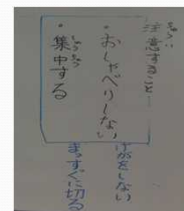 注意すること…
・おしゃべりしない
・集中する
けがをしない
まっすぐに切る